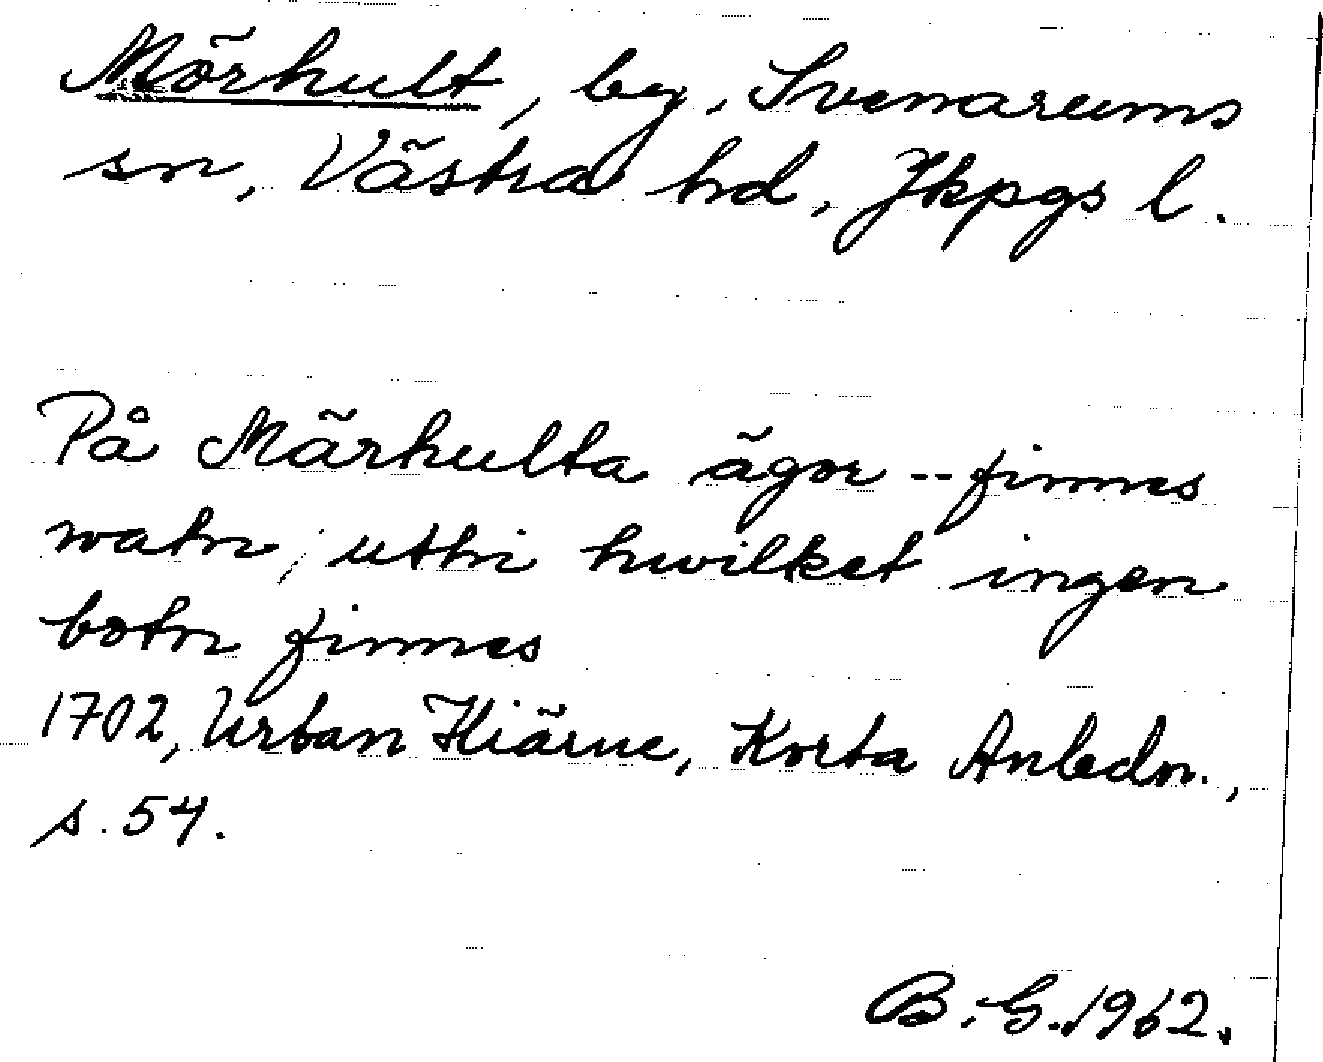 Mörhult, by, Svenarums
sn, Västra hd, Jkpgs l.
På Märhulta ägor -- finnes
watn, uthi hwilket ingen
botn finnes
1702, Urban Hiärne, Korta Anledn.,
s. 54.
B.G. 1962.